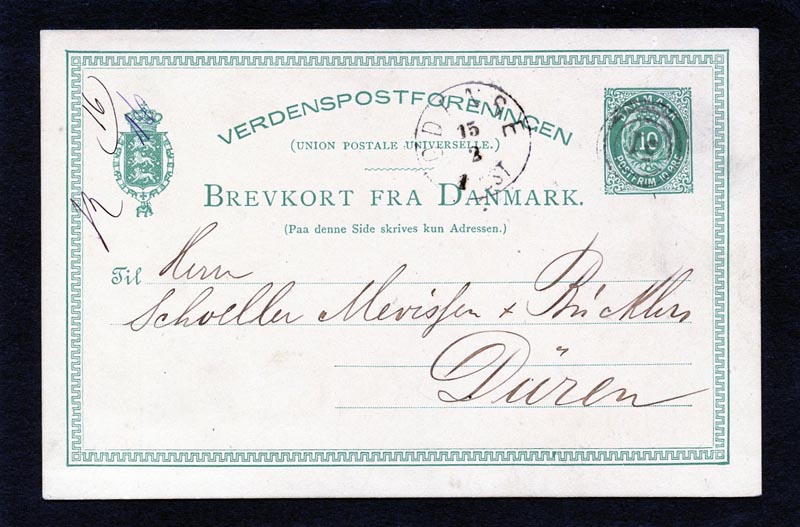 VERDENSPOSTFORENINGEN
(UNION POSTALE UNIVERSELLE.)
BREVKORT FRA DANMARK.
(Paa denne Side skrives kun Adressen.)
ODENSE
15
2
POST
DANMARK
10
POSTFRIM 10 ØRE
Til Herrn
Schoeller Mevissen + Bücklers
Düren